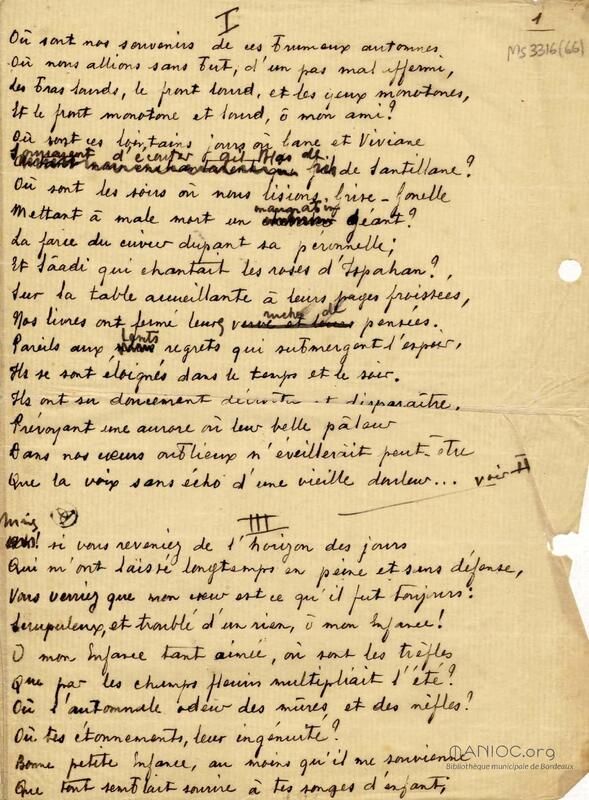 I
1
Ms 3316 (66)
Où sont nos souvenirs de ces brumeux automnes
Où nous allions sans but, d'un pas mal affermi,
Les bras lourds, le front lourd, et les yeux monotones,
Et le front monotone et lourd, ô mon ami?
Où sont ces lointains jours où Liane et Viviane
d'écouter Gil Blas dit de Santillane?
Où sont les soirs où nous lisions, brise-fonelle
Mettant à male mort un géant?
La farce du cuvier dupant sa péronnelle;
Et Sâadi qui chantait les roses d'Ispahan?,
Sur la table accueillante à leurs pages froissées,
Nos livres ont fermé leurs ruches de pensées.
Pareils aux lents regrets qui submergent l'espoir,
Ils se sont éloignés dans le temps et le soir.
Ils ont su doucement décroître et disparaître,
Prévoyant une aurore où leur belle pâleur
Dans nos cœurs oublieux n'éveillerait peut-être
Que la voix sans écho d'une vieille douleur... voir II
III
Mais si vous reveniez de l'horizon des jours
Qui m'ont laissé longtemps en peine et sans défense,
Vous verriez que mon cœur est ce qu'il fut toujours:
Scrupuleux, et troublé d'un rien, ô mon Enfance!
O mon Enfance tant aimée, où sont les trèfles
Que par les champs fleuris multipliait l'été?
Où l'automnale odeur des mûres et des nèfles?
Où tes étonnements, leur ingénuité?
Bonne petite Enfance, au moins qu'il me souvienne
Que tout semblait sourire à tes songes d'enfant;
MANIOC.org
Bibliothèque municipale de Bordeaux